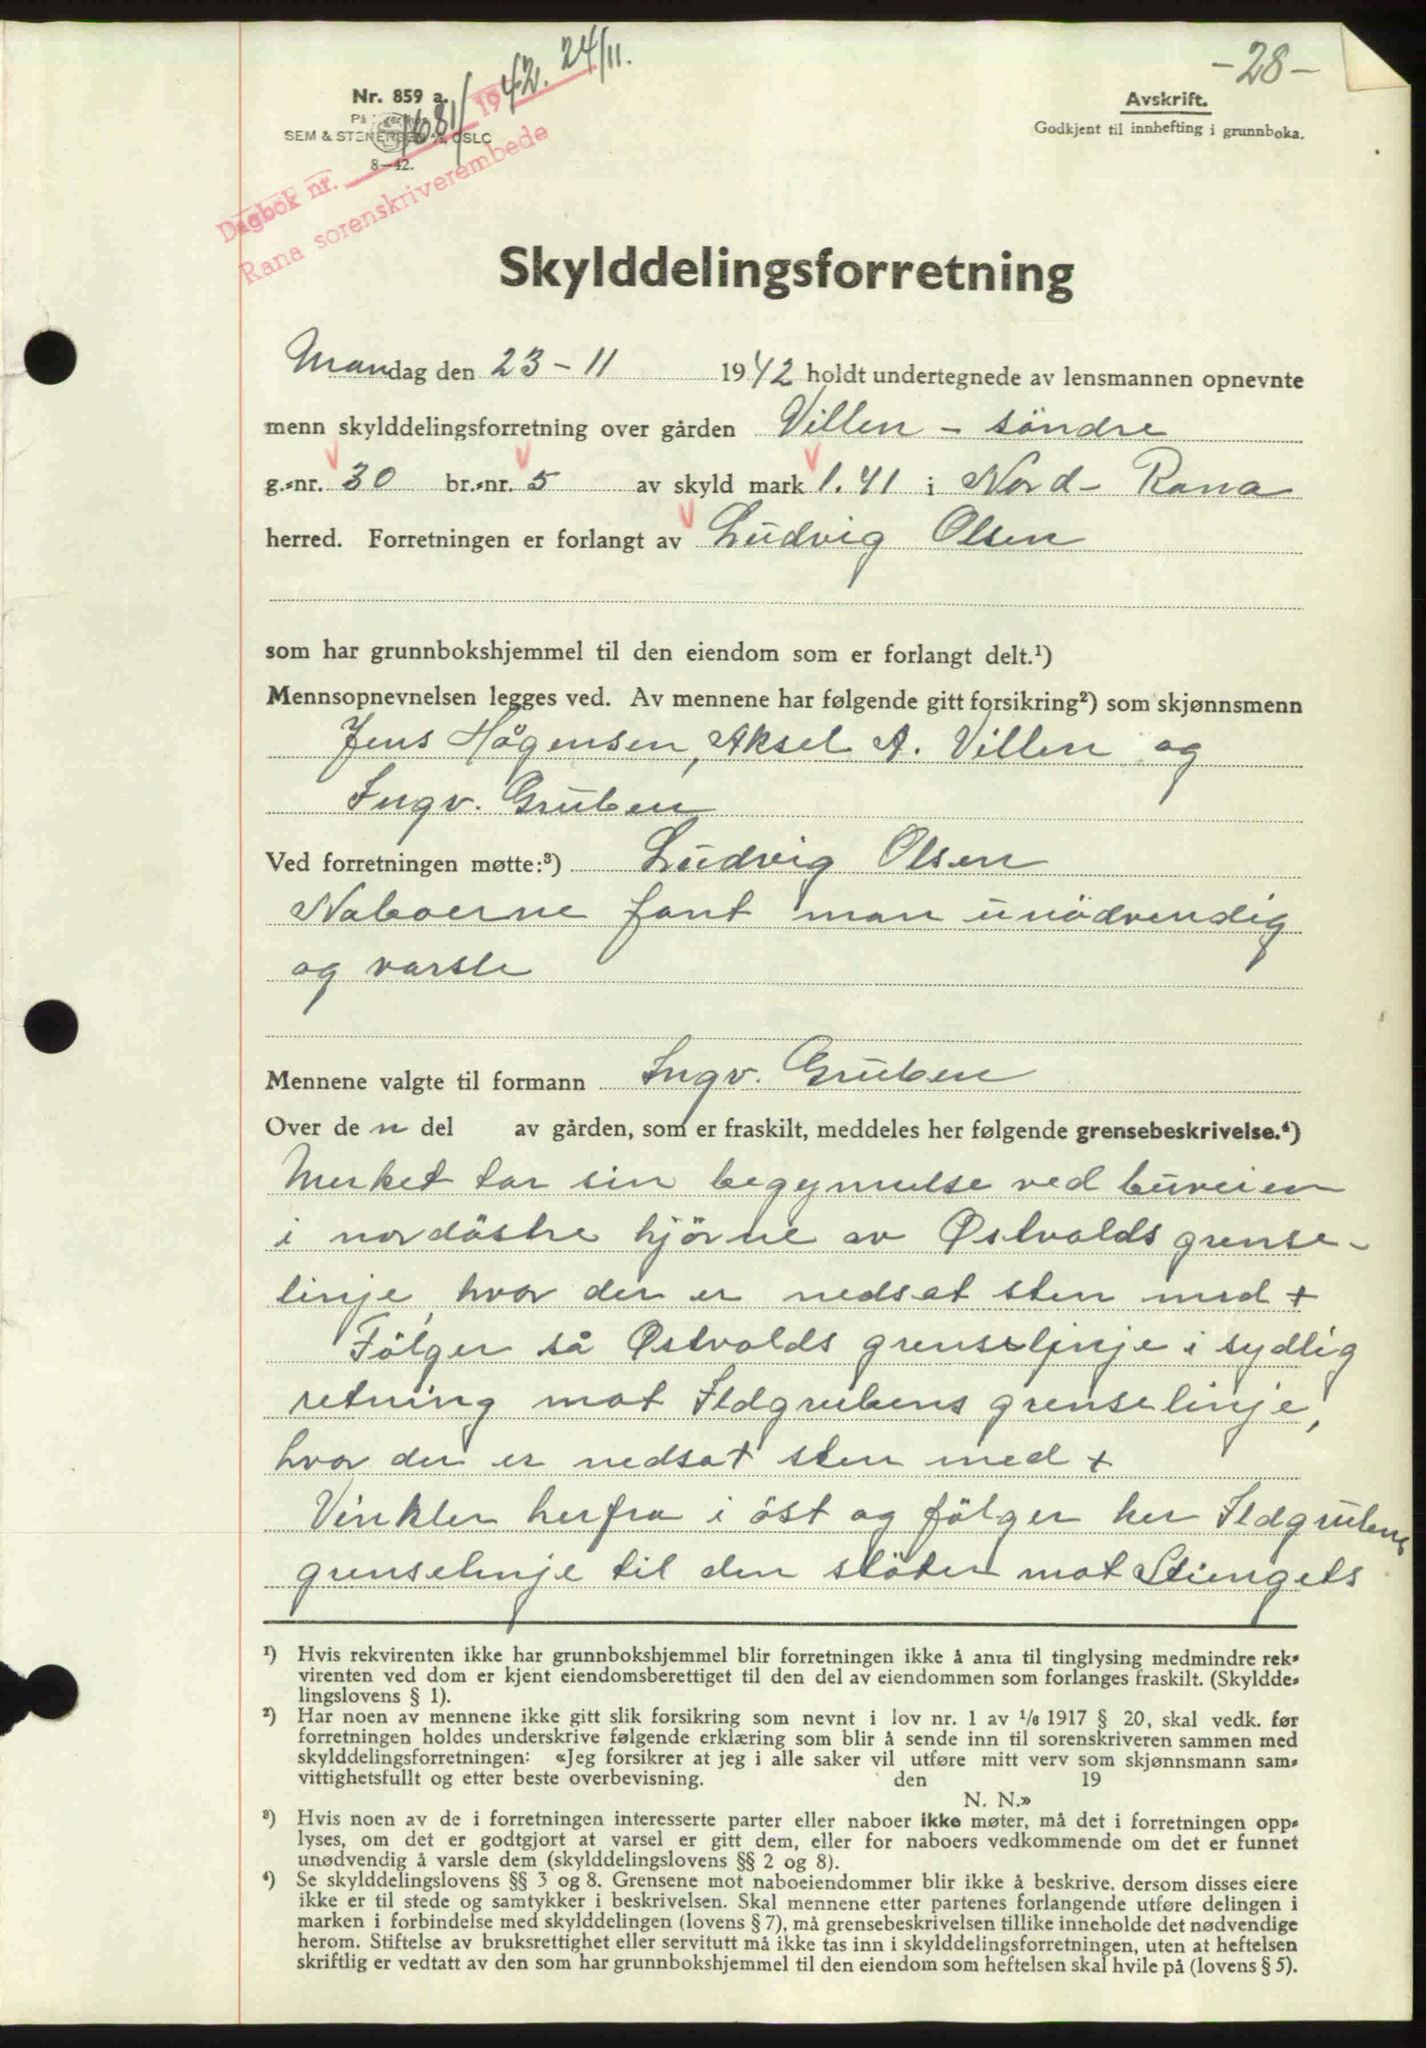 - 28 -
Nr. 859 a.
SEM & STENERSEN A/S OSLO
8—42.
Dagbok nr. 1681/1942. 24/11.
Rana sorenskriverembede
Avskrift.
Godkjent til innhefting i grunnboka.
Skylddelingsforretning
Mandag den 23-11 1942 holdt undertegnede av lensmannen opnevnte
menn skylddelingsforretning over gården Villen - söndre
g.-nr. 30 br.-nr. 5 av skyld mark 1.41 i Nord-Rana
herred. Forretningen er forlangt av Ludvig Olsen
som har grunnbokshjemmel til den eiendom som er forlangt delt.¹)
Mennsopnevnelsen legges ved. Av mennene har følgende gitt forsikring²) som skjønnsmenn
Jens Hågensen, Aksel A. Villen og
Ingv. Gruben
Ved forretningen møtte:³) Ludvig Olsen
Naboerne fant man unödvendig
og varsle
Mennene valgte til formann Ingv. Gruben
Over de n del av gården, som er fraskilt, meddeles her følgende grensebeskrivelse.⁴)
Merket tar sin begynnelse ved buveien
i nordöstre hjörne av Østvolds grense-
linje, hvor der er nedsat sten med +
Fölger så Østvolds grenselinje i sydlig
retning mot Ildgrubens grenselinje,
hvor der er nedsat sten med +
Vinkler herfra i öst og fölger her Ildgrubens
grenselinje til den stöter mot Stiengets
¹) Hvis rekvirenten ikke har grunnbokshjemmel blir forretningen ikke å anta til tinglysing medmindre rek-
virenten ved dom er kjent eiendomsberettiget til den del av eiendommen som forlanges fraskilt. (Skyldde-
lingslovens § 1).
²) Har noen av mennene ikke gitt slik forsikring som nevnt i lov nr. 1 av 1/6 1917 § 20, skal vedk. før
forretningen holdes underskrive følgende erklæring som blir å sende inn til sorenskriveren sammen med
skylddelingsforretningen: «Jeg forsikrer at jeg i alle saker vil utføre mitt verv som skjønnsmann sam-
vittighetsfullt og etter beste overbevisning. den 19
N. N.»
³) Hvis noen av de i forretningen interesserte parter eller naboer ikke møter, må det i forretningen opp-
lyses, om det er godtgjort at varsel er gitt dem, eller for naboers vedkommende om det er funnet
unødvendig å varsle dem (skylddelingslovens §§ 2 og 8).
⁴) Se skylddelingslovens §§ 3 og 8. Grensene mot naboeiendommer blir ikke å beskrive, dersom disses eiere
ikke er til stede og samtykker i beskrivelsen. Skal mennene etter partenes forlangende utføre delingen i
marken i forbindelse med skylddelingen (lovens § 7), må grensebeskrivelsen tillike inneholde det nødvendige
herom. Stiftelse av bruksrettighet eller servitutt må ikke tas inn i skylddelingsforretningen, uten at heftelsen
skriftlig er vedtatt av den som har grunnbokshjemmel til den eiendom som heftelsen skal hvile på (lovens § 5).